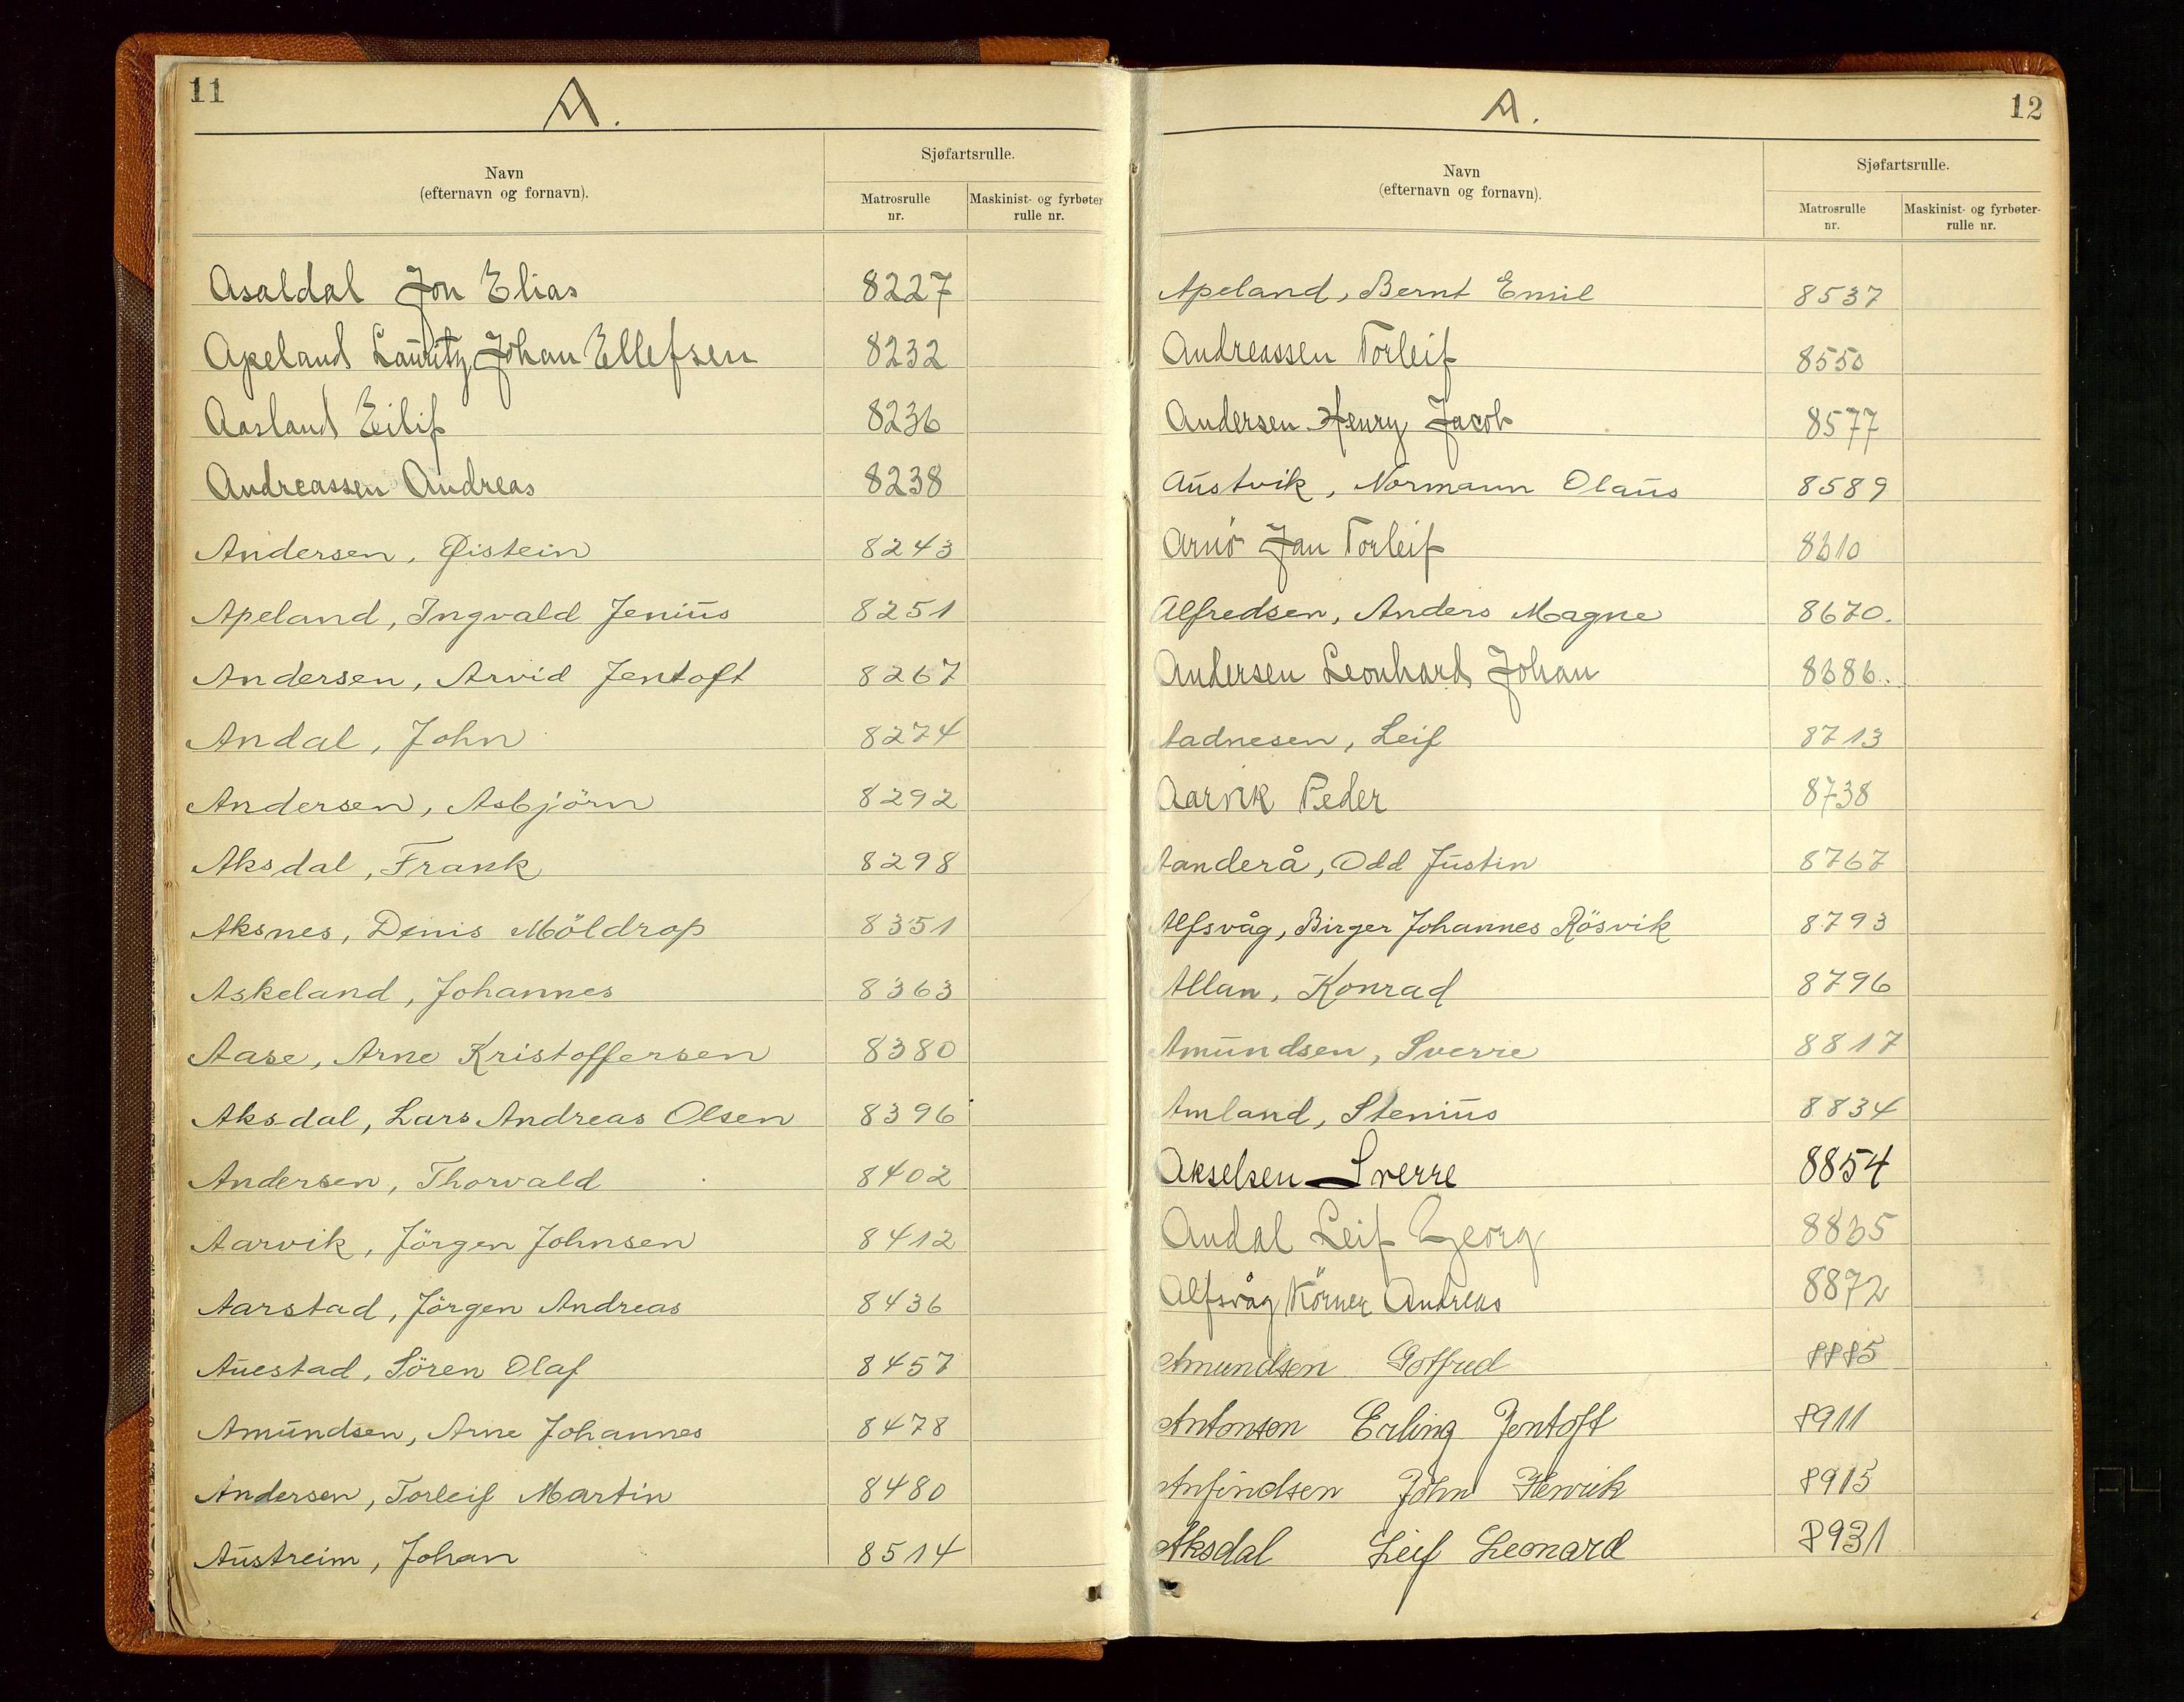 11
A.
Navn
(efternavn og fornavn).
Sjøfartsrulle.
Matrosrulle
nr.
Maskinist- og fyrbøter
rulle nr.
Asaldal Jon Elias 8227
Apeland Lauritz Johan Ellefsen 8232
Aasland Eilif 8236
Andreassen Andreas 8238
Andersen, Øistein 8243
Apeland, Ingvald Jenius 8251
Andersen, Arvid Jentoft 8267
Andal, John 8274
Andersen, Asbjörn 8292
Aksdal, Frank 8298
Aksnes, Denis Möldrop 8351
Askeland, Johannes 8363
Aase, Arne Kristoffersen 8380
Aksdal, Lars Andreas Olsen 8396
Andersen, Thorvald 8402
Aarvik, Jörgen Johnsen 8412
Aarstad, Jörgen Andreas 8436
Auestad, Sören Olaf 8457
Amundsen, Arne Johannes 8478
Andersen, Torleif Martin 8480
Austreim, Johan 8514
A.
12
Navn
(efternavn og fornavn).
Sjøfartsrulle.
Matrosrulle
nr.
Maskinist- og fyrbøter-
rulle nr.
Apeland, Bernt Emil 8537
Andreassen Torleif 8550
Andersen Henry Jacob 8577
Austvik, Normann Olaus 8589
Arnö Jan Torleif 8610
Alfredsen, Anders Magne 8670.
Andersen Leonhard Johan 8686.
Aadnesen, Leif 8713
Aarvik Peder 8738
Aanderå, Odd Justin 8767
Alfsvåg, Birger Johannes Rösvik 8793
Allan, Konrad 8796
Amundsen, Sverre 8817
Amland, Stenius 8834
Akselsen Sverre 8854
Andal Leif Georg 8865
Alfsvåg Körner Andreas 8872
Amundsen Gotfred 8885
Antonsen Erling Jentoft 8911
Anfindsen John Henrik 8915
Aksdal Leif Leonard 8931